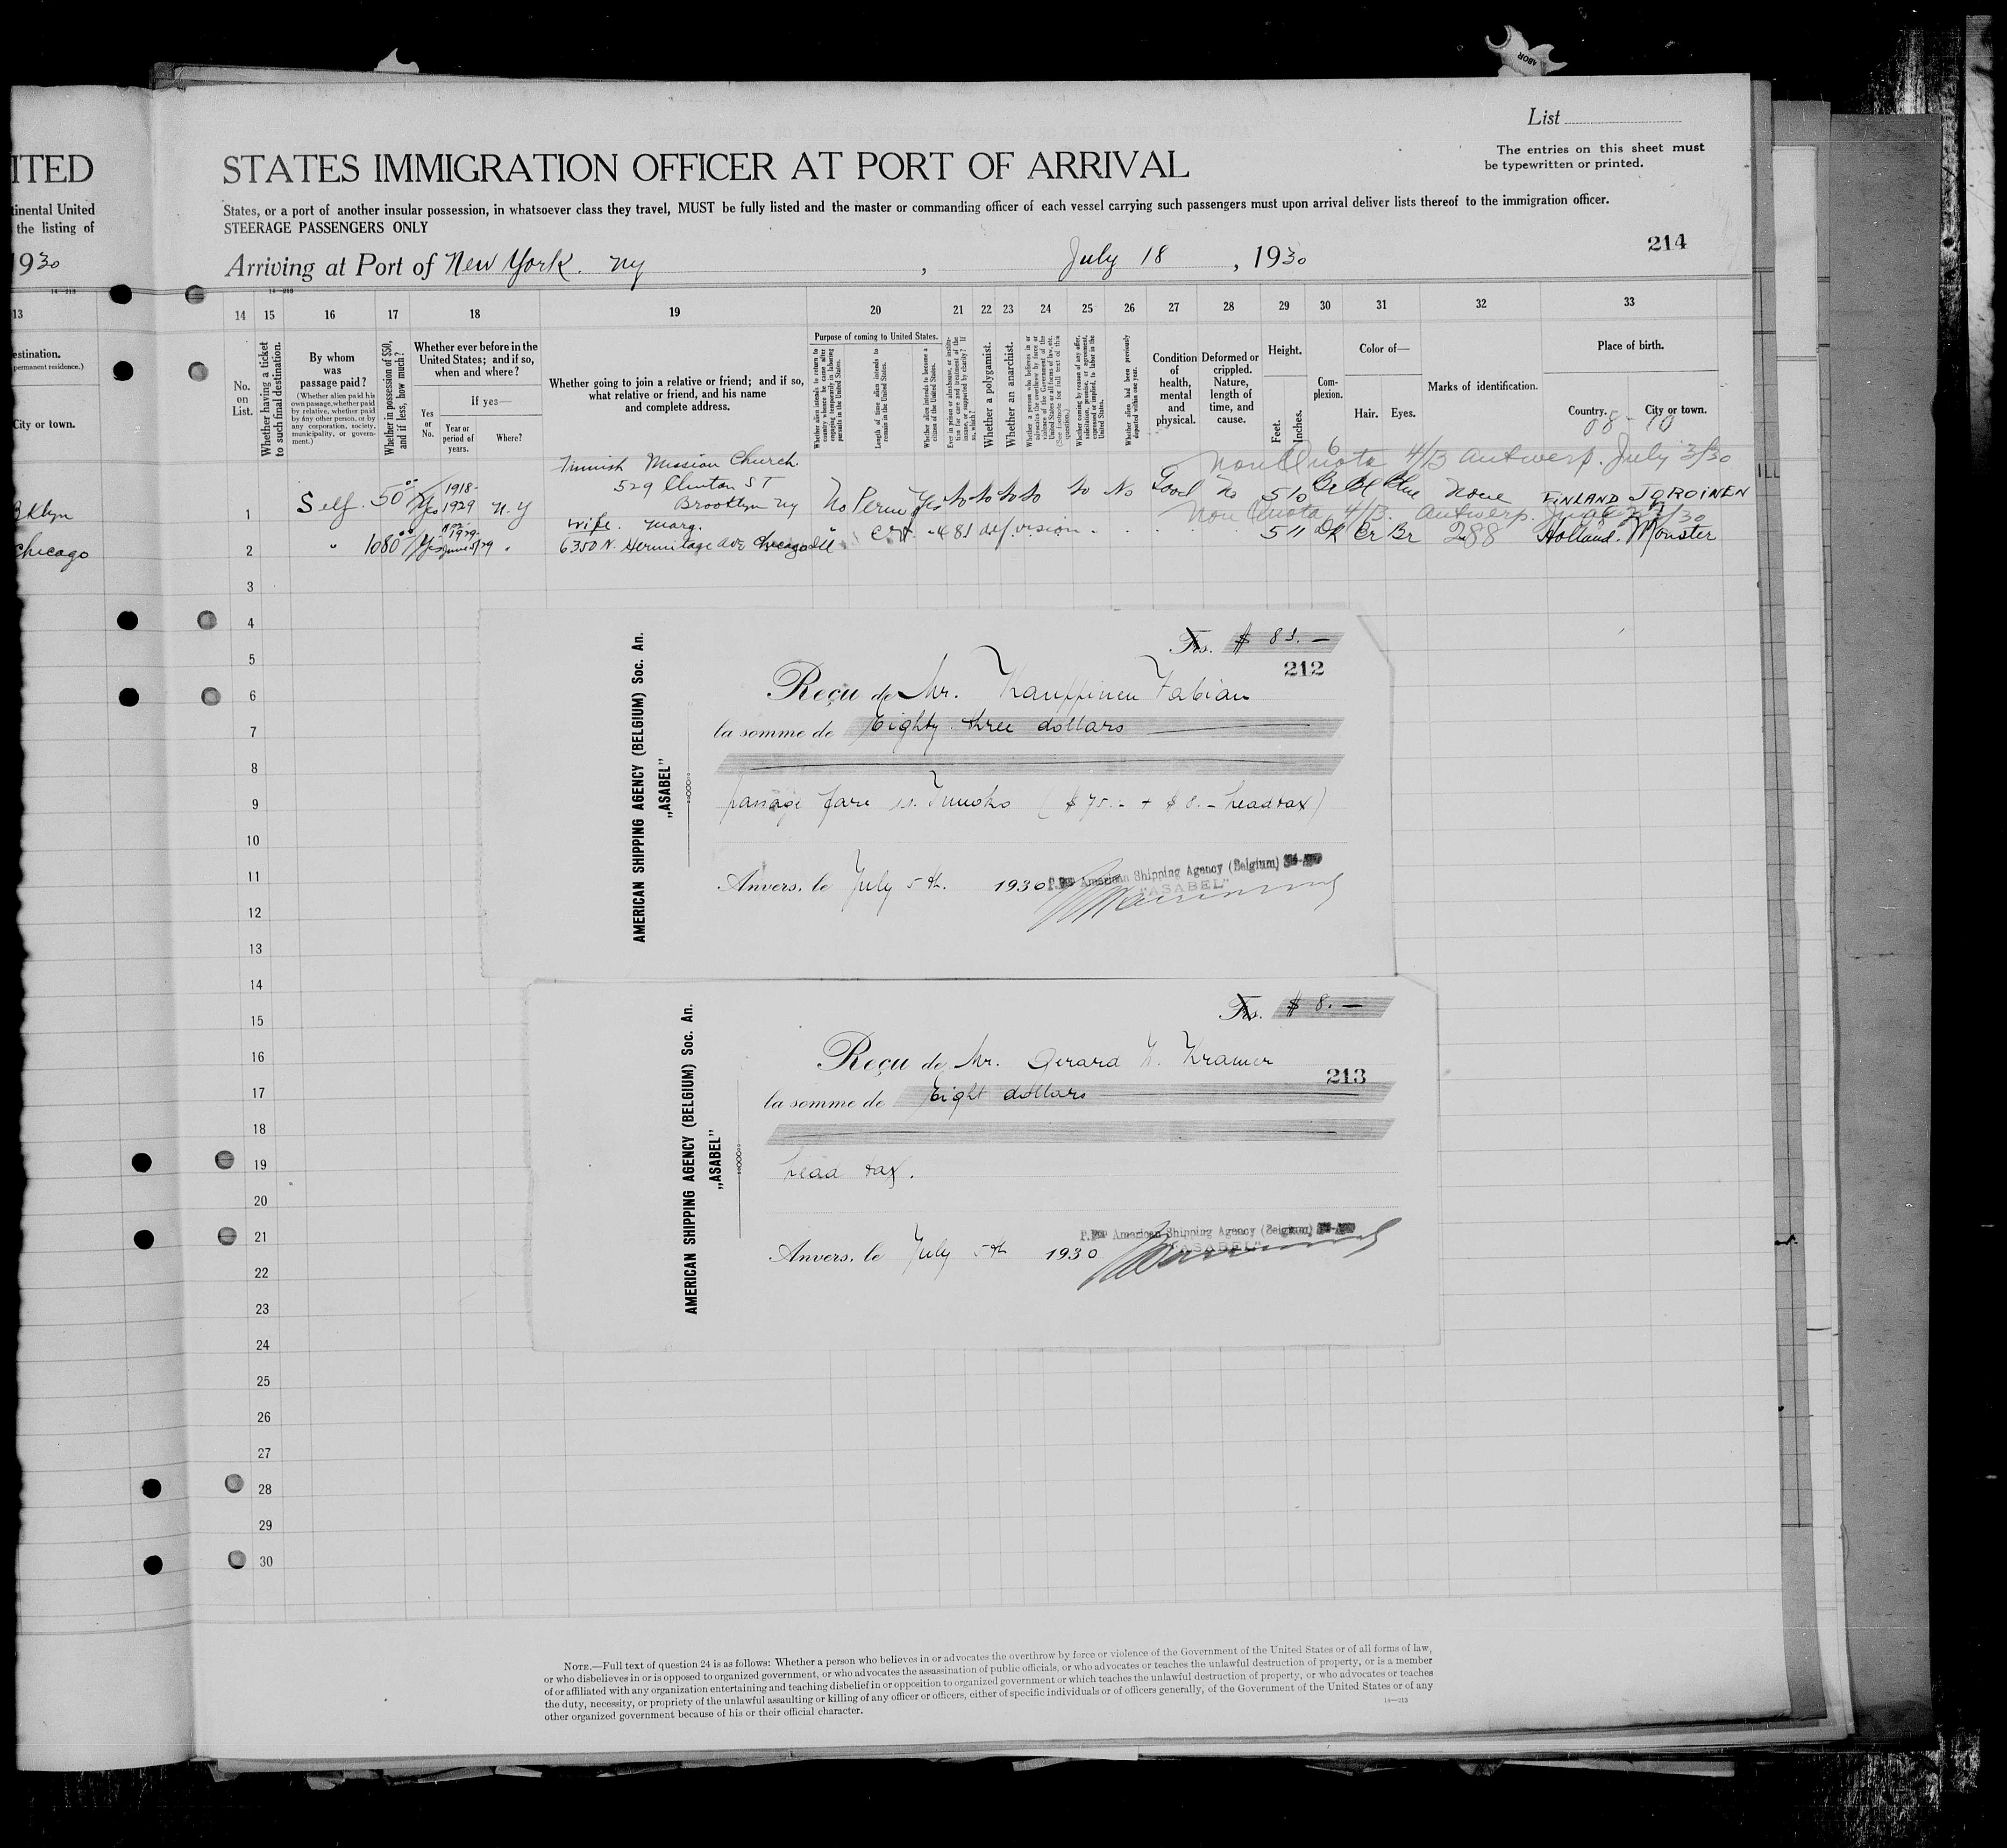 ABOR
List
The entries on this sheet must
be typewritten or printed.
ITED
STATES IMMIGRATION OFFICER AT PORT OF ARRIVAL
tinental United
the listing of
States, or a port of another insular possession, in whatsoever class they travel, MUST be fully listed and the master or commanding officer of each vessel carrying such passengers must upon arrival deliver lists thereof to the immigration officer.
STEERAGE PASSENGERS ONLY
214
1930
Arriving at Port of New York. NY, July 18, 1930
14—213
14—213
13
14 15 16 17 18 19 20 21 22 23 24 25 26 27 28 29 30 31 32 33
estination.
permanent residence.)
City or town.
No.
on
List.
Whether having a ticket
to such final destination.
By whom
was
passage paid?
(Whether alien paid his
own passage, whether paid
by relative, whether paid
by any other person, or by
any corporation, society,
municipality, or govern-
ment.)
Whether in possession of $50,
and if less, how much?
Whether ever before in the
United States; and if so,
when and where?
Yes
or
No.
If yes—
Year or
period of
years.
Where?
Whether going to join a relative or friend; and if so,
what relative or friend, and his name
and complete address.
Purpose of coming to United States.
Whether alien intends to return to
country whence he came after
engaging temporarily in laboring
pursuits in the United States.
Length of time alien intends to
remain in the United States.
Whether alien intends to become a
citizen of the United States.
Ever in prison or almshouse, or institu-
tion for care and treatment of the
insane, or supported by charity? If
so, which?
Whether a polygamist.
Whether an anarchist.
Whether a person who believes in or
advocates the overthrow by force or
violence of the Government of the
United States or all forms of law, etc.
(See footnote for full text of this
question.)
Whether coming by reason of any offer,
solicitation, promise, or agreement,
expressed or implied, to labor in the
United States.
Whether alien had been previously
deported within one year.
Condition
of
health,
mental
and
physical.
Deformed or
crippled.
Nature,
length of
time, and
cause.
Height.
Feet.
Inches.
Com-
plexion.
Color of—
Hair. Eyes.
Marks of identification.
Place of birth.
Country. City or town.
Non Quota 4/13 Antwerp. July 3/30
Bklyn
1 Self 50 Yes 1918-
1929 N.Y
Finnish Mission Church.
529 Clinton ST
Brooklyn NY
No Perm Yes No No No No No No Good No 5 10 Blue None FINLAND JOROINEN
Non Quota 4/13. Antwerp.
Chicago
2 " 1080 Yes 1929 "
Wife. Marg.
6350 N. Hermitage Ave Chicago Ill
5 11 DK Br 288 Holland. Monster
3
4
5
6
7
8
9
10
11
12
13
14
15
16
17
18
19
20
21
22
23
24
25
26
27
28
29
30
AMERICAN SHIPPING AGENCY (BELGIUM) Soc. An.
„ASABEL”
Frs. $ 83.—
212
Reçu de Mr. Kauppinen Fabian
la somme de Eighty three dollars
passage fare ($ 75.- + $ 8.- headtax)
Anvers, le July 5th. 1930
American Shipping Agency (Belgium)
"ASABEL"
AMERICAN SHIPPING AGENCY (BELGIUM) Soc. An.
„ASABEL”
Frs. $ 8.—
Reçu de Mr. Gerard N. Kramer
213
la somme de Eight dollars
head tax.
Anvers, le July 5th 1930
American Shipping Agency (Belgium)
"ASABEL"
NOTE.—Full text of question 24 is as follows: Whether a person who believes in or advocates the overthrow by force or violence of the Government of the United States or of all forms of law,
or who disbelieves in or is opposed to organized government, or who advocates the assassination of public officials, or who advocates or teaches the unlawful destruction of property, or is a member
of or affiliated with any organization entertaining and teaching disbelief in or opposition to organized government or which teaches the unlawful destruction of property, or who advocates or teaches
the duty, necessity, or propriety of the unlawful assaulting or killing of any officer or officers, either of specific individuals or of officers generally, of the Government of the United States or of any
other organized government because of his or their official character.
14—213